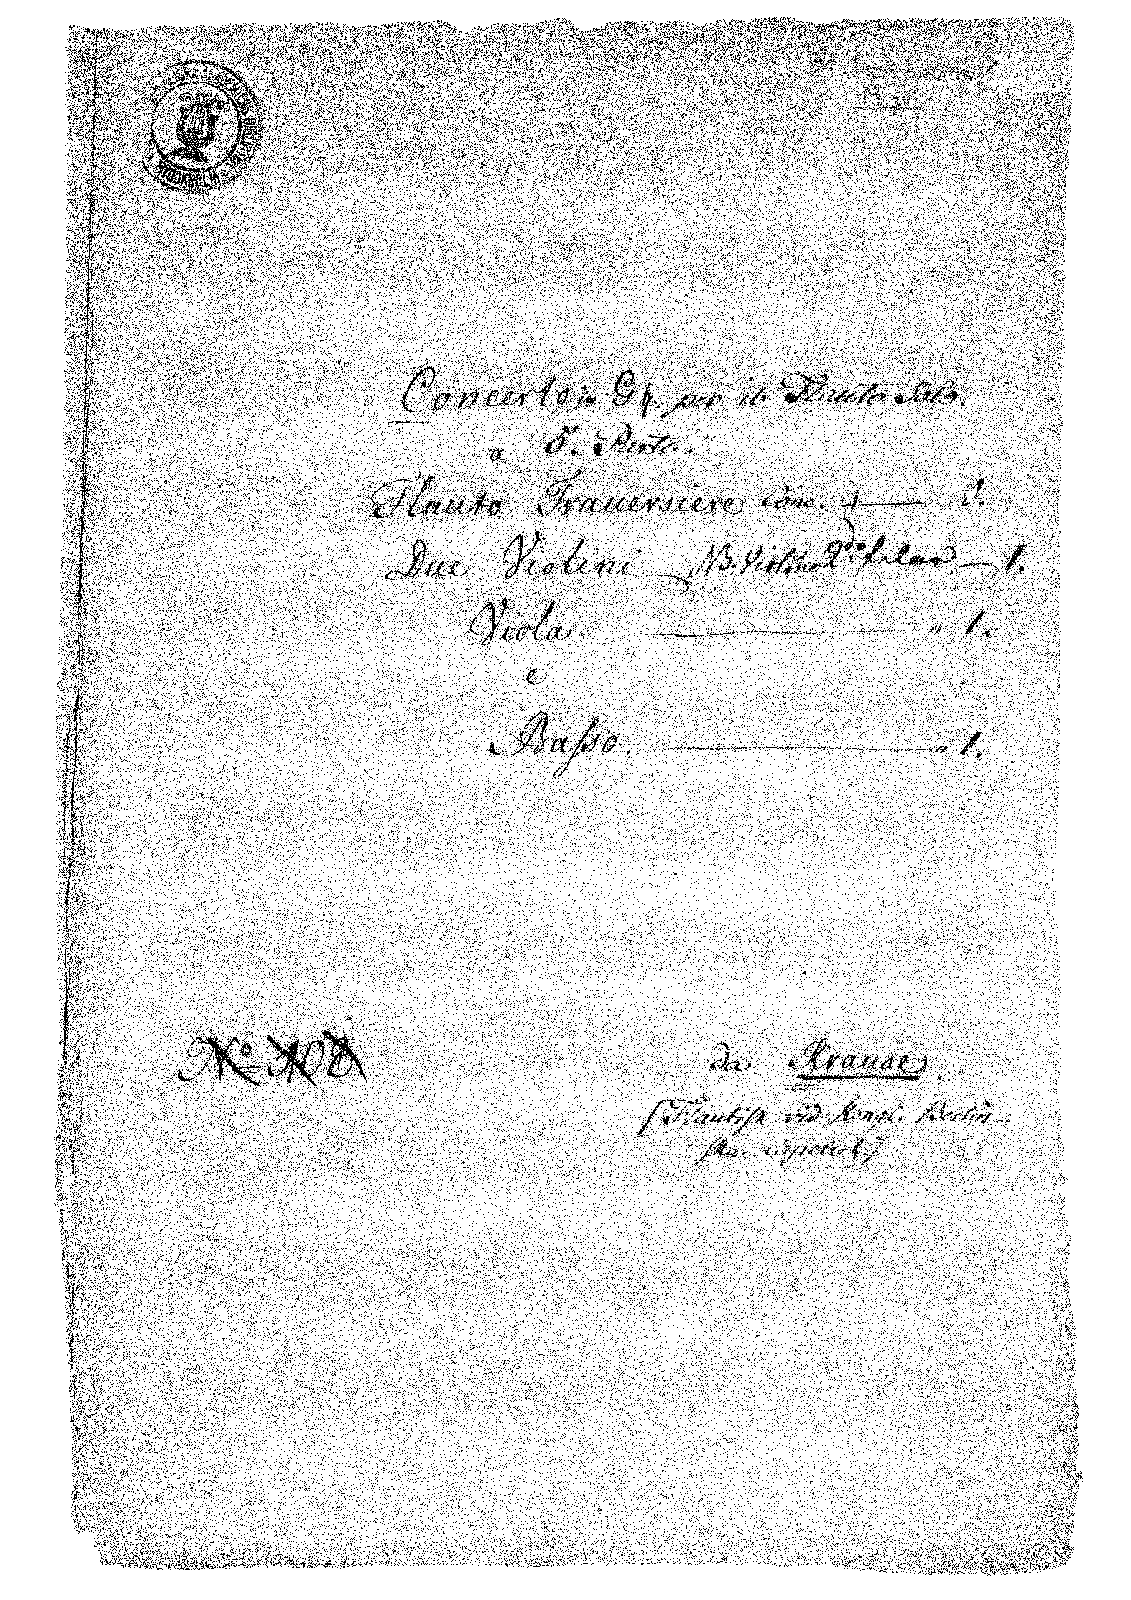 Concerto in G♮. per il Flauto Solo.
a 5. Parti.
Flauto Traversiere conc. 1.
Due Violini NB. Violino 2do 1.
Viola. " 1.
e
Basso. " 1.
No.
da Krause
(Flautist Königl. Berlin